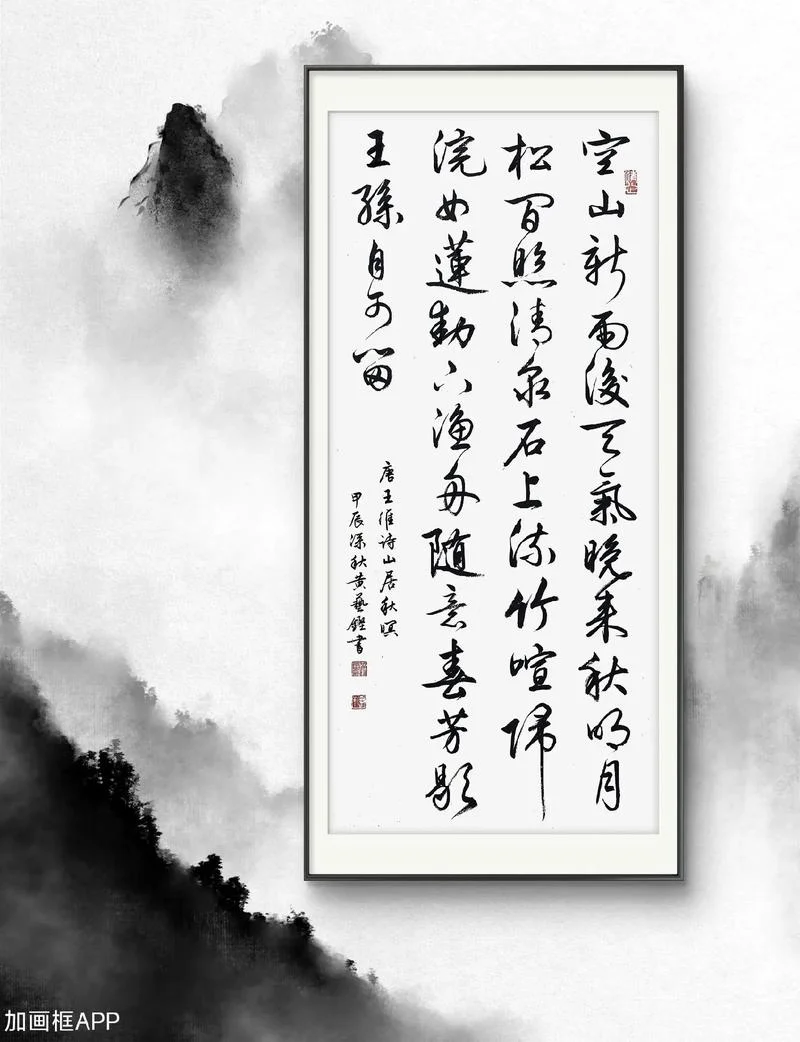 空山新雨後天氣晚来秋明月
松間照清泉石上流竹喧歸
浣女蓮動下漁舟随意春芳歇
王孫自可留
唐王維詩山居秋暝
甲辰深秋黄藝鏗書
加画框APP